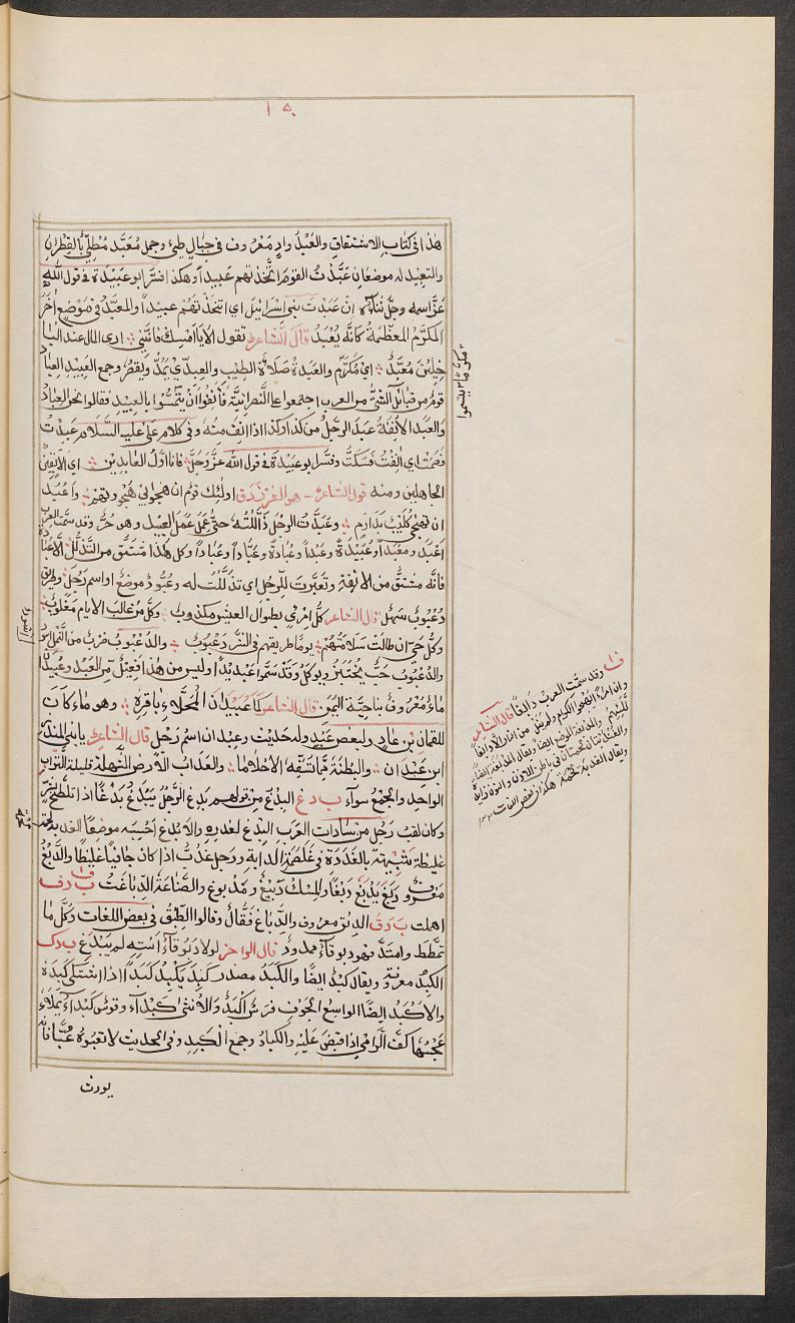 ١٥
هٰذا فى كتاب الاشتقاق والعَبْدُ وادٍ مَعْرُوف فى جبال طيئ وجمل مُعَبَّد مُطْلِىٌّ بالقِطران
والتعبيد له موضعان عَبَّدْتُ القومَ اتّخذتهم عَبيداً وهكذا فسّر ابو عبَيْدَة فى قول الله
عزّ اسمه وجلّ ثناؤه ان عَبَّدتَ بنى اسرائيل اى اتخذتهم عبيداً والمعبَّد فى مَوْضع آخر
المكرَّمُ المعظَّمُ كانّه يُعْبَدُ قال الشاعر تقول الا يا امسِك فانّنى ارى المال عند البا
خِلِينَ مُعَبَّدَ اى مُكَرَّم والعَبَدةُ صَلَاةُ الطيب والعِبدّىٰ يُمَدُّ ويُقصَرُ وجمع العَبِيدِ العِبَاد
قومٌ من قبائل شتّى من العرب اجتمعوا على النصرانيّة فَأَنِفُوا أنْ يتَسَمَّوا بالعبيد فقالوا نحن العِبَادُ
والعَبَد الأنَفَةُ عَبَدَ الرجلُ من كذا وكذا اذا انِفَ منه وفى كلام علىّ عليه السلام عَبِدتُ
فصَمتُّ اى انِفْتُ فسَكَتُّ وفسّر ابو عبيدة فى قول الله عزّ وجلّ فانا اوّل العابدين اى الآنِفِينَ
الجاهلين ومنه قول الشاعر هو الفرزدق اولٰئك قوم ان هجونى هَجوتهم واعْبَد
ان تهجى كُلَيْب بدارِم وعَبَّدت الرجُل ذَلَّلْتُه حتى عَمِلَ عَمَلَ العبيد وهو حُرّ وقد سمّت العرب
اَعْبَد ومَعْبَداً وعُبَيْدَةَ وعَبْداً وعُبَادة وعَبَّاداً وعُبَاداً وكل هذا مشتق من التذلل الا عُبَادة
فانّه مشتقّ من الانفة وتعبّدت للرجل اى تذلّلتُ له وعَبُّودٌ موضعٌ او اسم رجل وطريق
دُعْبُوبٌ سَهْل قال الشاعر كلّ امرئٍ بطوال العيش مكذوب وكلّ من غالب الايام مغلوبُ
وكلُّ حىّ ان طالت سَلامتُهُم يوما طريقهم فى الشرّ دعبوب والدعبوب ضرب من النمل اسود
والدعبوب حَبّ يُختَبَز ويوكل وقد سَمّوا عَبديداً وليس من هذا افعيل من العبد وعُبيدانُ
ماءٌ مَعْرُوف بناحِيَة اليمن قال الشاعر كماء عُبَيْدان المُحَلَّاءِ باقِرُه وهو ماءٌ كان
للقمان بن عادٍ ولبعض عبيده له حديث وعبدان اسم رَجل قال الشاعر يا بنى المنذر
ابن عَبْدَان والبطنة ممّا تسفّه الاحلاما والعَدابُ الارض السَّهلة قليلة التراب
الواحد والجمع سواء ب د غ البَدَغ من قولهم بَدِغ الرَّجُل يَبْدَغُ بَدَغاً اذا تلطّخ بالشرّ
وكان لقب رَجل من سَادات العرب البَدِغ لغدره والابدغ احسبه موضعًا
غليظة شبيهة بالغُدَدة فى غَلْصَمَة الدابة ورجل غُدُبٌّ اذا كان جافياً غليظاً والدَّبْغُ
معروف دَبَغَ يَدْبُغُ دَبْغاً والمَسْك دَبِيغ ومَدْبوغ والصّناعة الدّباغة ب د ف
اهملت ب د ق الدبق معروف والدّباغ فَعّال وقالوا الطِّبْق فى بعض اللغات وكلّ ما
تمطّط وامتدّ فهو دبوقاء ممدود قال الراجز لولا دَبوقاءُ اسْتِه لم يَبْدَغ ب د ك
الكَبِدُ معرفة ويقال كَبْدٌ ايضًا والكَبَدُ مصدر كَبِدَ يَكْبَدُ كَبَداً اذا اشتكى كبِدَهُ
والاكبد ايضا الواسع الجوف فرسٌ اَكْبَدُ والأنثىٰ كبداء وقوس كَبْداء يملأ
عَجْسُها كفّ الرامى اذا قبض عَلَيْهِ والكُبَادُ وجع الكبد وفى الحديث لا تعُبُّوه عَبّا فانه
يورث
وقد سمّت العرب دابغًا قال الشاعر